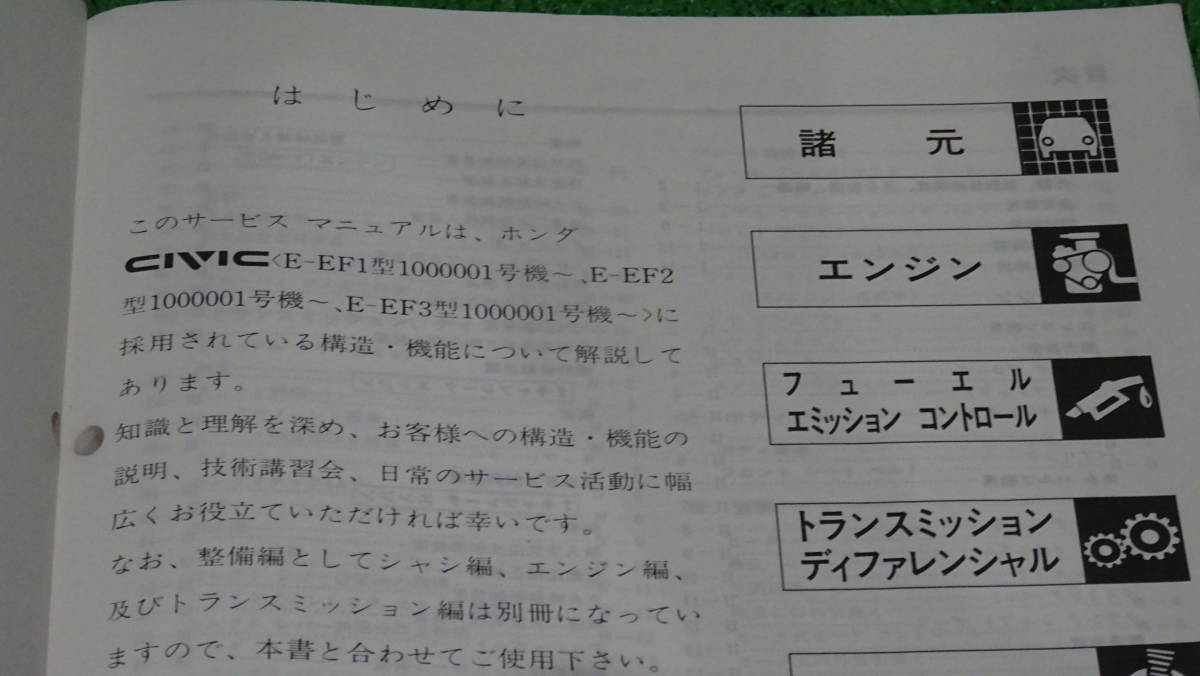 はじめに
このサービス マニュアルは、ホンダ
CIVIC〈E-EF1型1000001号機～、E-EF2
型1000001号機～、E-EF3型1000001号機～〉に
採用されている構造・機能について解説して
あります。
知識と理解を深め、お客様への構造・機能の
説明、技術講習会、日常のサービス活動に幅
広くお役立ていただければ幸いです。
なお、整備編としてシャシ編、エンジン編、
及びトランスミッション編は別冊になってい
ますので、本書と合わせてご使用下さい。
諸元
エンジン
フューエル
エミッション コントロール
トランスミッション
ディファレンシャル
目次